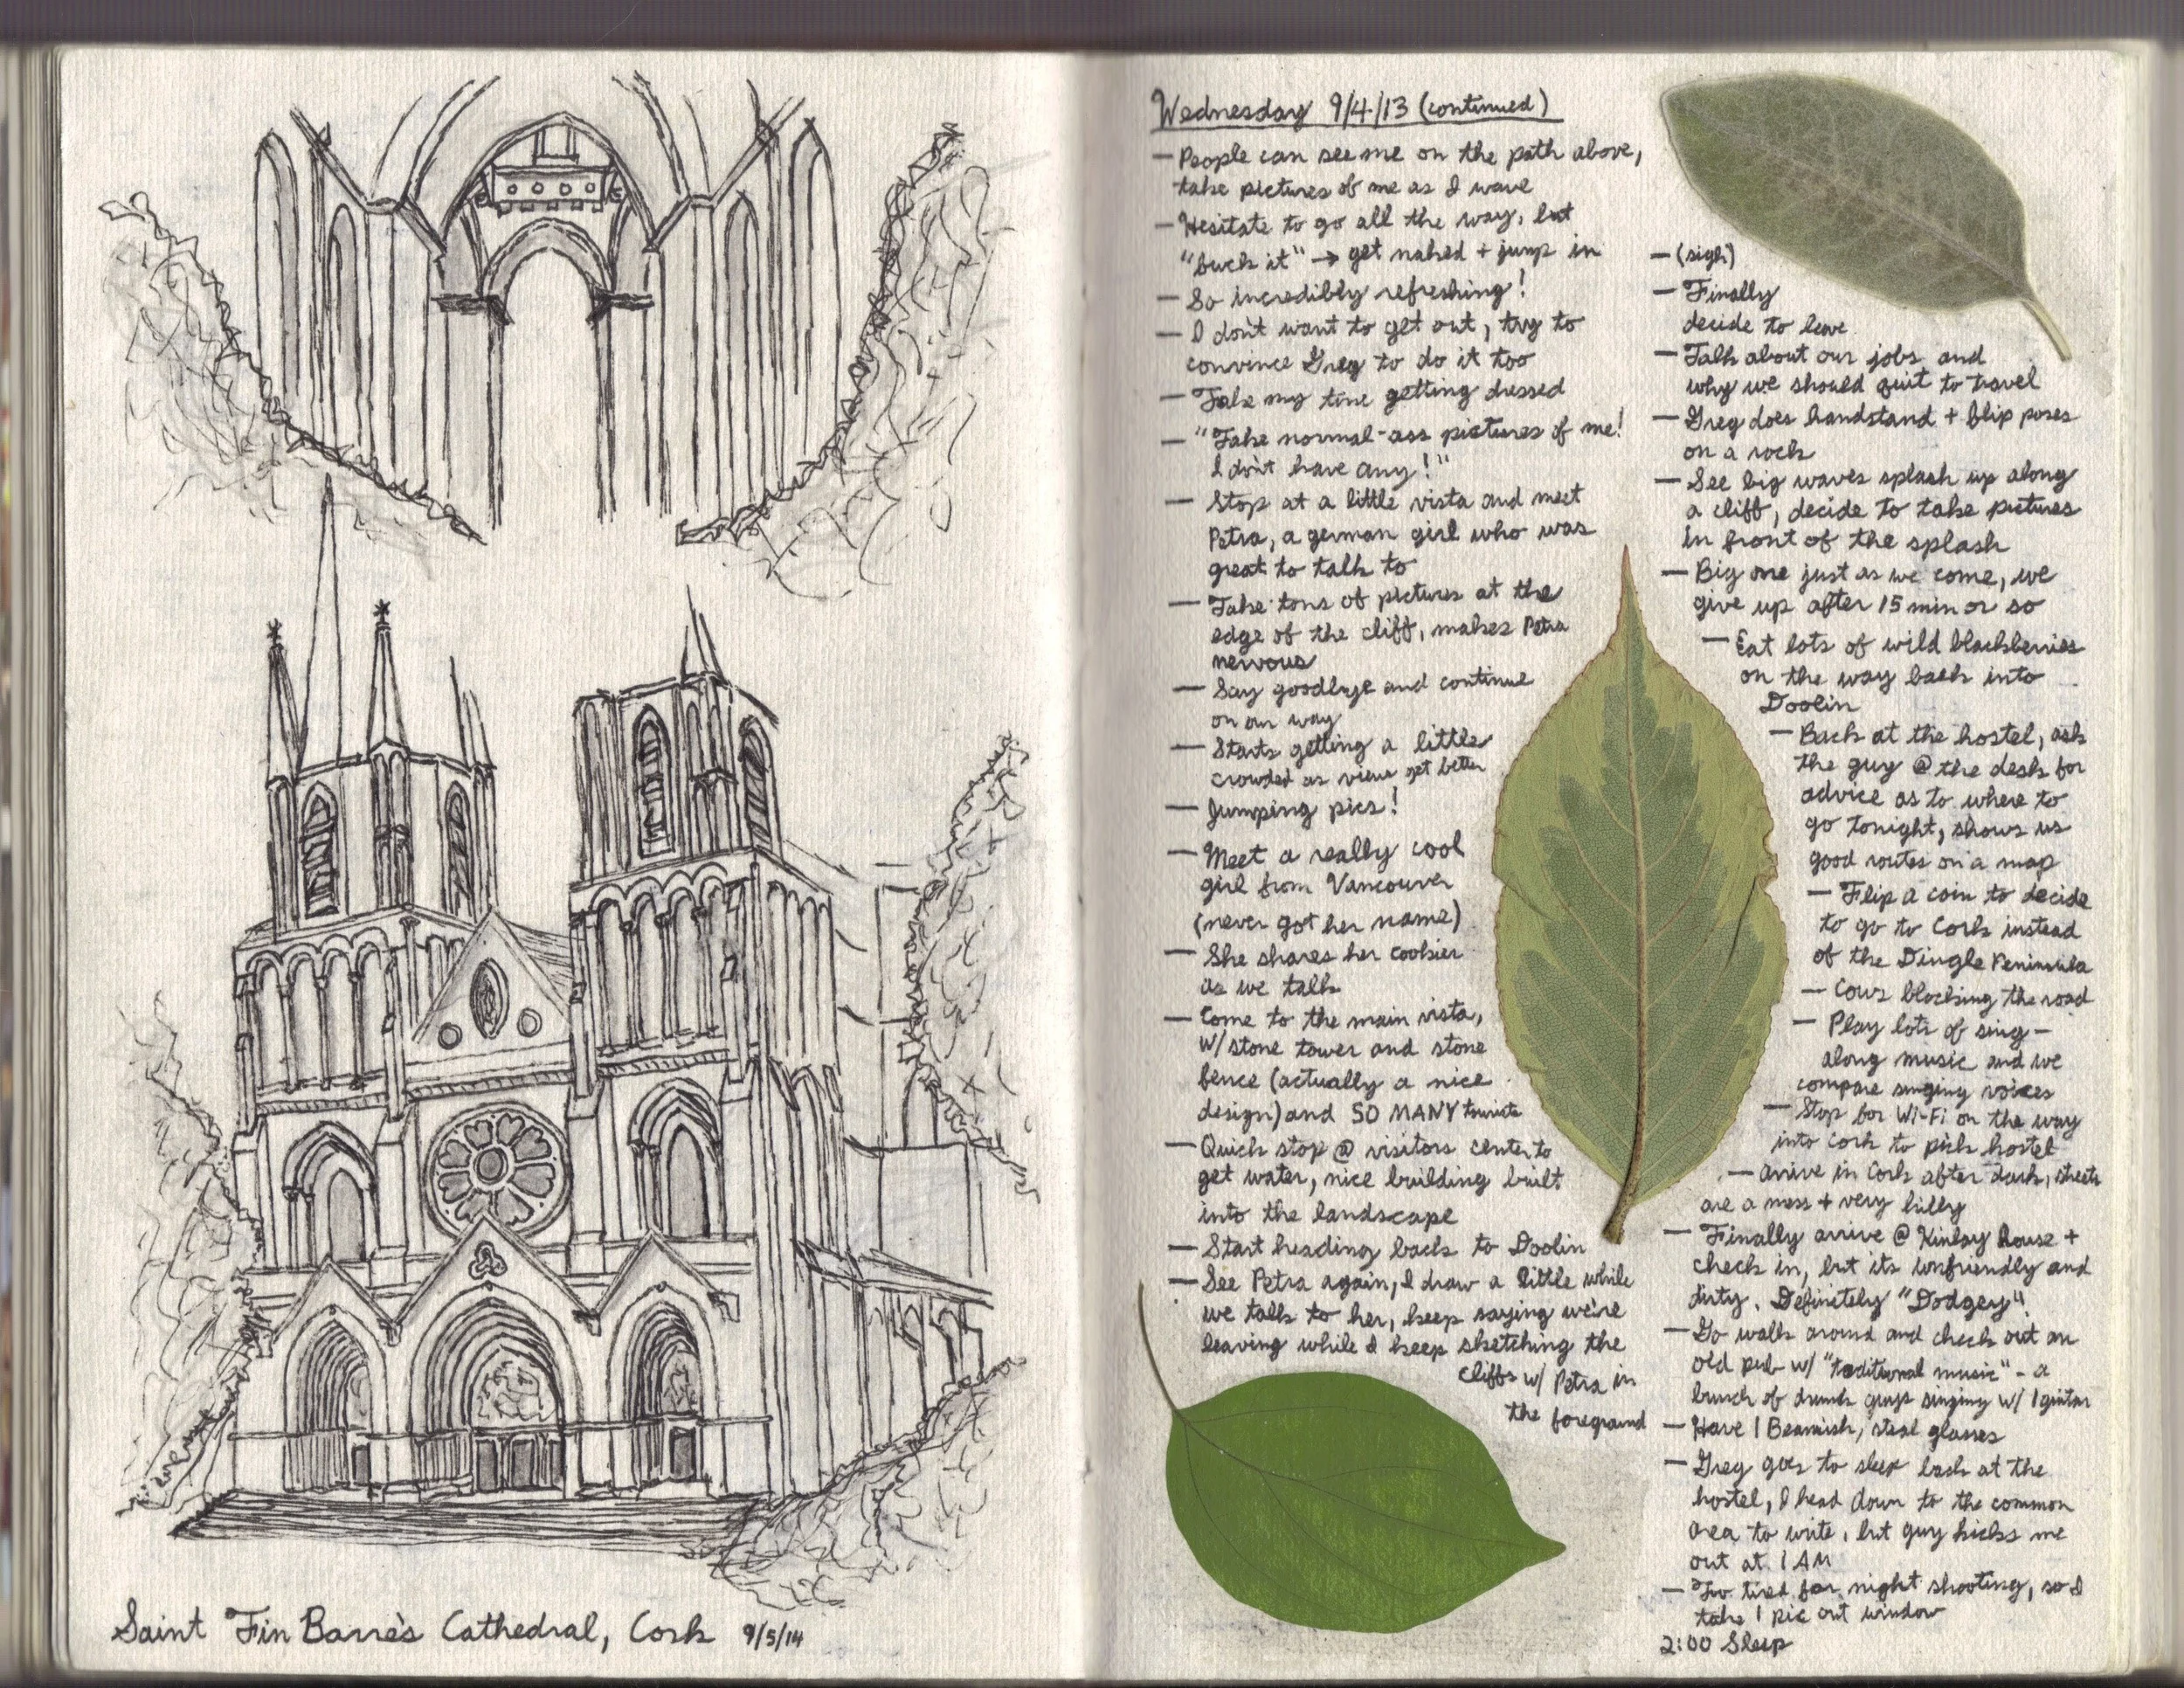 Saint Fin Barre's Cathedral, Cork 9/5/14
Wednesday 9/4/13 (continued)
— People can see me on the path above,
take pictures of me as I wave
— Hesitate to go all the way, but
"fuck it" → get naked + jump in
— So incredibly refreshing!
— I don't want to get out, try to
convince Greg to do it too
— Take my time getting dressed
— "Take normal-ass pictures of me!
I don't have any!"
— Stop at a little vista and meet
Petra, a german girl who was
great to talk to
— Take tons of pictures at the
edge of the cliff, makes Petra
nervous
— Say goodbye and continue
on our way
— Starts getting a little
crowded as view get better
— Jumping pics!
— Meet a really cool
girl from Vancouver
(never got her name)
— She shares her cookies
as we talk
— Come to the main vista,
w/ stone tower and stone
fence (actually a nice
design) and SO MANY tourists
— Quick stop @ visitors center to
get water, nice building built
into the landscape
— Start heading back to Doolin
— See Petra again, I draw a little while
we talk to her, keep saying we're
leaving while I keep sketching the
cliffs w/ Petra in
the foreground
— (sigh)
— Finally
decide to leave
— Talk about our jobs and
why we should quit to travel
— Greg does handstand + flip poses
on a rock
— See big waves splash up along
a cliff, decide to take pictures
in front of the splash
— Big one just as we come, we
give up after 15 min or so
— Eat lots of wild blackberries
on the way back into
Doolin
— Back at the hostel, ask
the guy @ the desk for
advice as to where to
go tonight, shows us
good routes on a map
— Flip a coin to decide
to go to Cork instead
of the Dingle Peninsula
— Cows blocking the road
— Play lots of sing-
along music and we
compare singing voices
— Stop for Wi-Fi on the way
into Cork to pick hostel
— Arrive in Cork after dark, streets
are a mess + very hilly
— Finally arrive @ Kinlay House +
check in, but its unfriendly and
dirty. Definetely "Dodgey"
— Go walk around and check out an
old pub w/ "traditional music" - a
bunch of drunk guys singing w/ 1 guitar
— Have 1 Beamish, steal glasses
— Greg goes to sleep back at the
hostel, I head down to the common
area to write, but guy kicks me
out at 1 AM
— Too tired for night shooting, so I
take 1 pic out window
2:00 Sleep